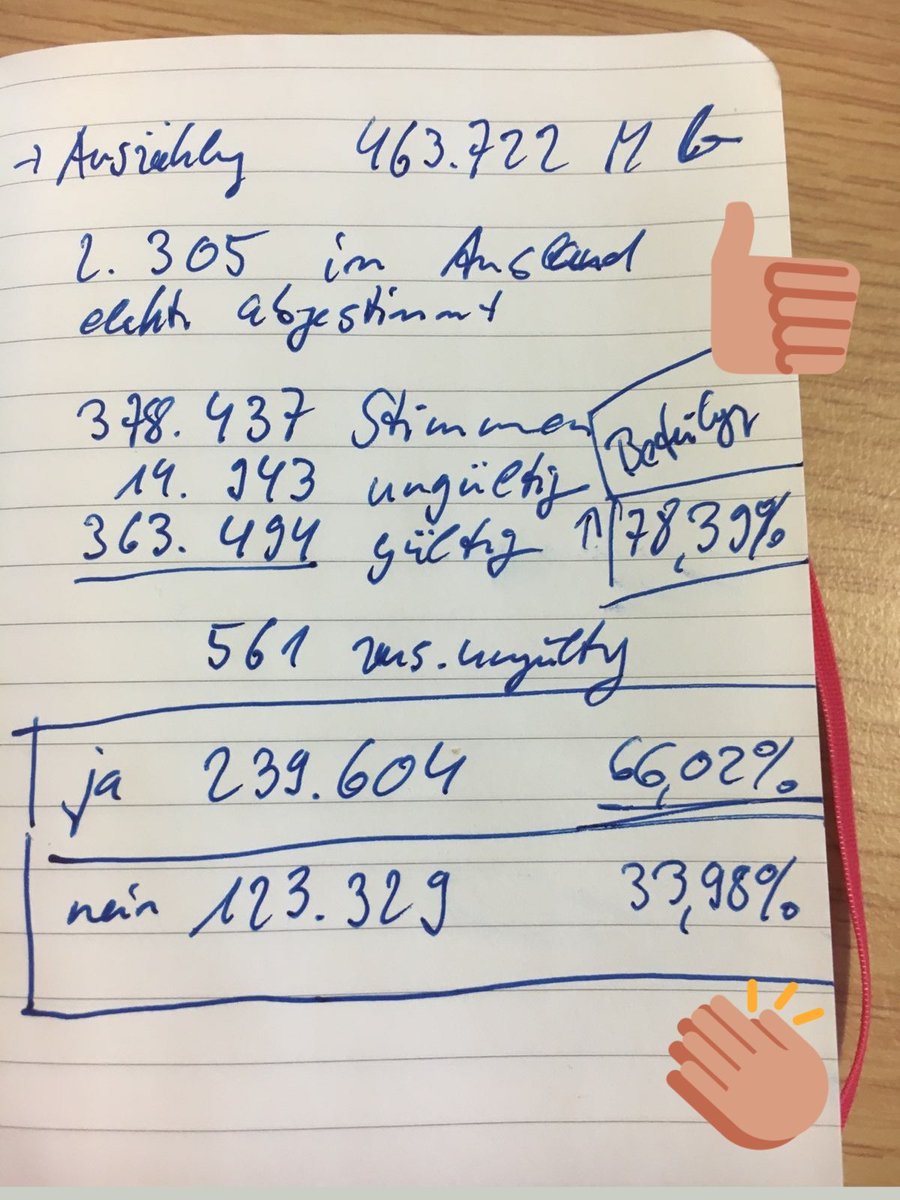 → Auszählung 463.722 M
2.305 im Ausland
elektr. abgestimmt
378.437 Stimmen
14.943 ungültig
Beteilgg
363.494 gültig ↑ 78,39%
561 ungültig
ja 239.604 66,02%
nein 123.329 33,98%